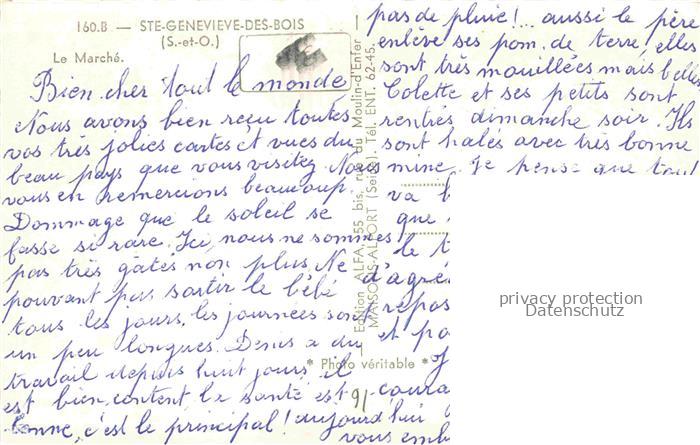 160.B — STE-GENEVIEVE-DES-BOIS
(S.-et-O.)
Le Marché.
Bien cher tout le monde
Nous avons bien reçu toutes
vos très jolies cartes et vues du
beau pays que vous visitez Nous
vous en remercions beaucoup.
Dommage que le soleil se
fasse si rare. Ici, nous ne sommes
pas très gâtés non plus. Ne
pouvant pas sortir le bébé
tous les jours, les journées sont
un peu longues. Denis a du
travail depuis huit jours, il
est bien content. la santé est
bonne, c'est le principal! aujourd'hui
pas de pluie!... aussi le père
enlève ses pom. de terre, elles
sont très mouillées mais belles
Colette et ses petits sont
rentrés dimanche soir. Ils
sont halés avec très bonne
mine. Je pense que tout
va b
que
le t
d'agré
repos
et pa
J
coura
vous emb
91
Edition ALFA, 55 bis, rue du Moulin-d'Enfer
MAISONS-ALFORT (Seine). Tél. ENT. 62-45.
* Photo véritable *
privacy protection
Datenschutz